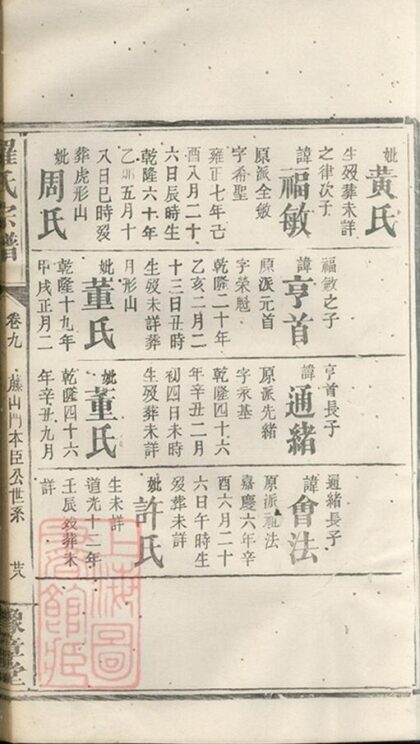 妣黃氏
生歿葬未詳
之律次子
諱福敏
原派全敏
字希聖
雍正七年己
酉八月二十
六日辰時生
乾隆六十年
乙卯五月十
八日巳時歿
葬虎形山
妣周氏
福敏之子
諱亨首
原派元首
字榮魁
乾隆二十年
乙亥二月二
十三日丑時
生歿未詳葬
月形山
妣董氏
乾隆十九年
甲戌正月二
亨首長子
諱通緒
原派先緒
字承基
乾隆四十六
年辛丑二月
初四日未時
生歿葬未詳
妣董氏
乾隆四十六
年辛丑九月
通緒長子
諱會法
原派法
嘉慶六年辛
酉六月二十
六日午時生
歿葬未詳
妣許氏
生未詳
道光十二年
壬辰歿葬未
詳
羅氏宗譜
卷九
山門本臣公世系
廿八
豫章堂
上海圖書館藏